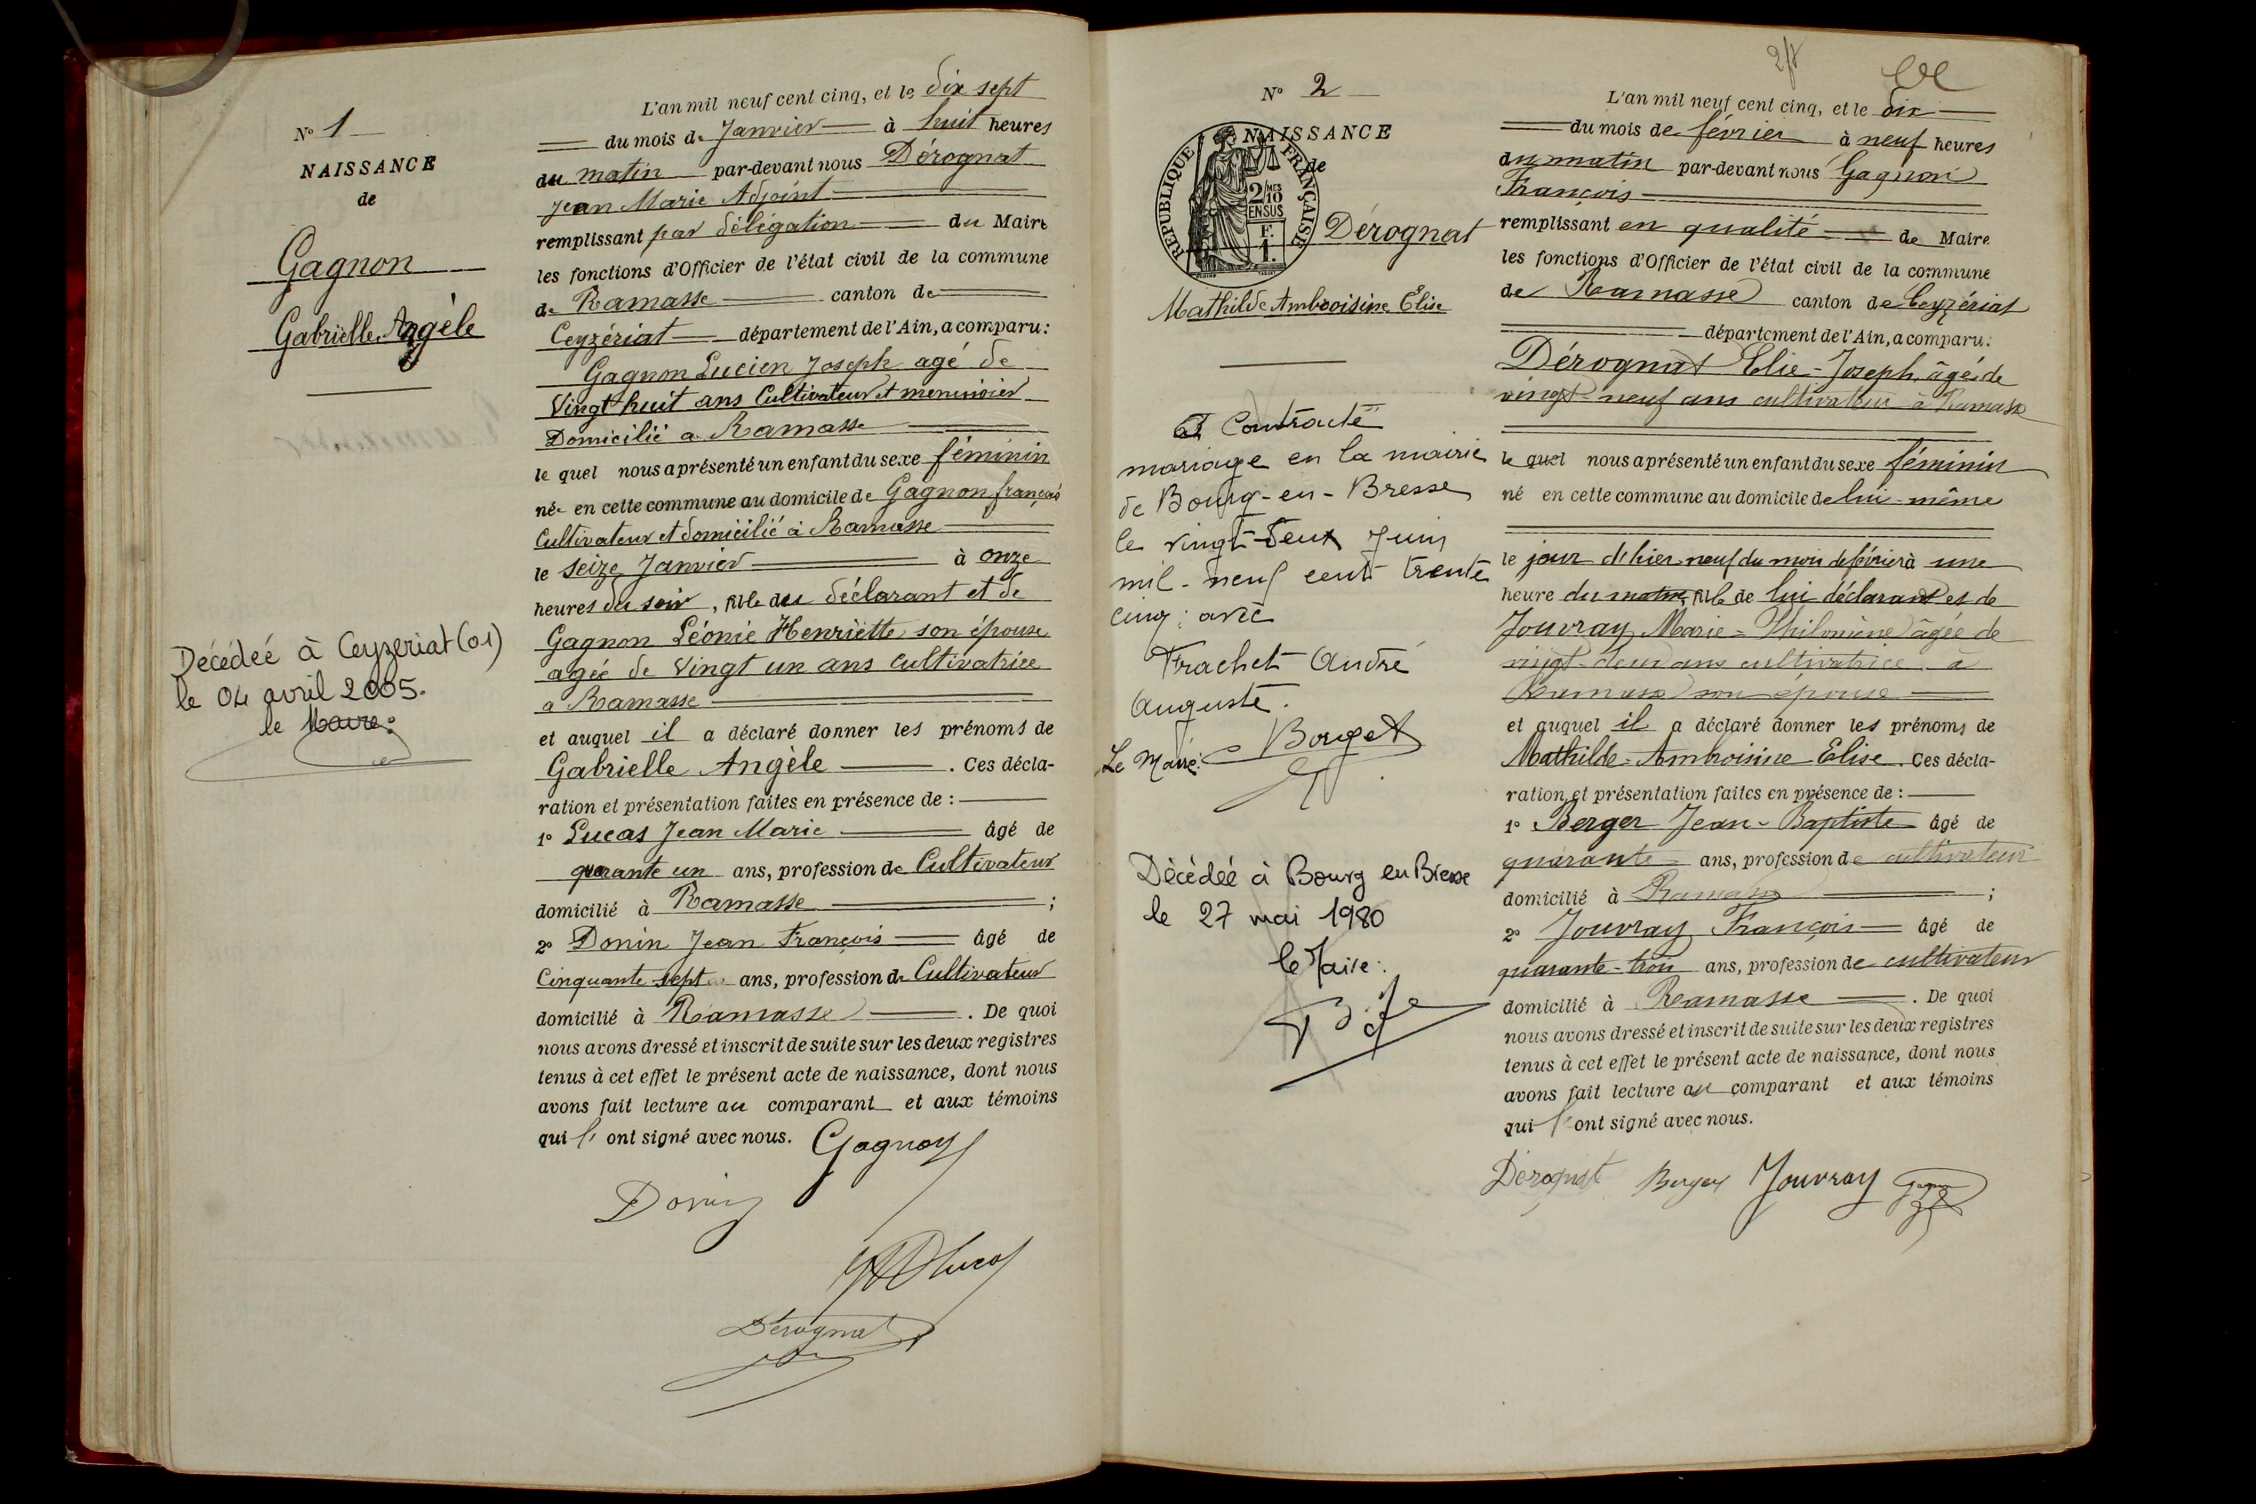 N° 1
NAISSANCE
de
Gagnon
Gabrielle Angèle
Décédée à Ceyzeriat (01)
le 04 avril 2005.
le Maire:
L'an mil neuf cent cinq, et le dix sept
du mois de Janvier à huit heures
du matin par-devant nous Dérognat
Jean Marie Adjoint
remplissant par délégation du Maire
les fonctions d'Officier de l'état civil de la commune
de Ramasse canton de
Ceyzériat département de l'Ain, a comparu:
Gagnon Lucien Joseph agé de
Vingt huit ans Cultivateur et menuisier
Domicilié a Ramasse
le quel nous a présenté un enfant du sexe féminin
née en cette commune au domicile de Gagnon françois
Cultivateur et domicilié à Ramasse
le seize Janvier à onze
heures du soir, fille du déclarant et de
Gagnon Léonie Henriette son épouse
agée de Vingt un ans cultivatrice
a Ramasse
et auquel il a déclaré donner les prénoms de
Gabrielle Angèle. Ces décla-
ration et présentation faites en présence de :
1° Lucas Jean Marie âgé de
quarante un ans, profession de Cultivateur
domicilié à Ramasse ;
2° Donin Jean François âgé de
Cinquante sept ans, profession de Cultivateur
domicilié à Ramasse. De quoi
nous avons dressé et inscrit de suite sur les deux registres
tenus à cet effet le présent acte de naissance, dont nous
avons fait lecture au comparant et aux témoins
qui l' ont signé avec nous. Gagnon
Donin
Lucas
Dérognat
N° 2
NAISSANCE
de
REPUBLIQUE FRANÇAISE
2/10
EN SUS
F.
1.
Dérognat
Mathilde Ambroisine Elise
Contracté
mariage en la mairie
de Bourg-en-Bresse
le vingt-deux Juin
mil-neuf cent trente
cinq; avec
Frachet André
Auguste.
Le Maire:
Décédée à Bourg en Bresse
le 27 mai 1980
le Maire:
L'an mil neuf cent cinq, et le dix
du mois de février à neuf heures
du matin par-devant nous Gagnon
François
remplissant en qualité de Maire
les fonctions d'Officier de l'état civil de la commune
de Ramasse canton de Ceyzériat
département de l'Ain, a comparu:
Dérognat Elie-Joseph, âgé de
vingt-neuf ans cultivateur à Ramasse
le quel nous a présenté un enfant du sexe féminin
né en cette commune au domicile de lui-même
le jour d'hier neuf du mois de février à une
heure du matin, fille de lui déclarant et de
Jouvray Marie-Philomène âgée de
vingt-deux ans cultivatrice à
Ramasse son épouse
et auquel il a déclaré donner les prénoms de
Mathilde-Ambroisine Elise. Ces décla-
ration et présentation faites en présence de :
1° Berger Jean-Baptiste âgé de
quarante ans, profession de cultivateur
domicilié à Ramasse ;
2° Jouvray François âgé de
quarante-trois ans, profession de cultivateur
domicilié à Ramasse. De quoi
nous avons dressé et inscrit de suite sur les deux registres
tenus à cet effet le présent acte de naissance, dont nous
avons fait lecture au comparant et aux témoins
qui l' ont signé avec nous.
Dérognat Berger Jouvray Gagnon